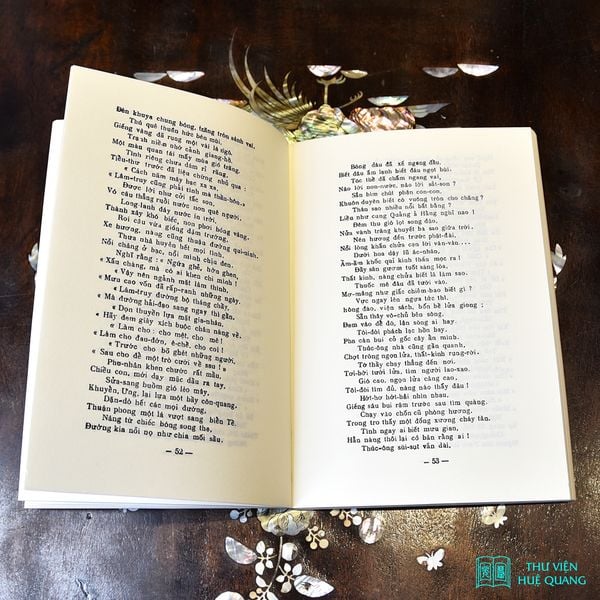 Đêm khuya chung bóng, trăng tròn sánh vai,
Thú quê thuần hức bén mùi,
Giếng vàng đã rụng một vài lá ngô,
Tranh niềm nhớ cảnh giang-hồ,
Một màu quan tái mấy mùa gió trăng,
Tình riêng chưa dám rỉ răng,
Tiểu-thư trước đã liệu chừng nhủ qua :
« Cách năm mây bạc xa xa,
« Lâm-truy cũng phải tính mà thần-hôn.»
Được lời như cởi tấc son,
Vó câu thẳng ruổi nước non quê người,
Long-lanh đáy nước in trời,
Thành xây khói biếc, non phơi bóng vàng,
Roi câu vừa gióng dặm trường,
Xe hương, nàng cũng thuận đường qui-ninh.
Thưa nhà huyên hết mọi tình,
Nỗi chàng ở bạc, nỗi mình chịu đen.
Nghĩ rằng : « Ngứa ghẻ, hờn ghen,
« Xấu chàng, mà có ai khen chi mình !
« Vậy nên ngảnh mặt làm thinh,
« Mưu cao vốn đã rắp-ranh những ngày,
« Lâm-truy đường bộ tháng chầy,
« Mà đường hải-đạo sang ngay thì gần,
« Dọn thuyền lựa mặt gia-nhân,
« Hãy đem giây xích buộc chân nàng về.
« Làm cho : cho mệt, cho mê !
« Làm cho đau-đớn, ê-chề, cho coi !
« Trước cho bõ ghét những người,
« Sau cho để một trò cười về sau ! »
Phu-nhân khen chước rất mầu,
Chiều con, mới dạy mặc dầu ra tay,
Sửa-sang buồm gió lèo mây,
Khuyển, Ưng, lại lựa một bầy côn-quang,
Dặn-dò hết các mọi đường,
Thuận phong một lá vượt sang biển Tề.
Nàng từ chiếc bóng song the,
Đường kia nỗi nọ như chia mối sầu.
— 52 —
Bóng dâu đã xế ngang đầu,
Biết đâu ấm lạnh biết đâu ngọt bùi.
Tóc thề đã chấm ngang vai,
Nào lời non-nước, nào lời sắt-son ?
Sắn bìm chút phận con-con,
Khuôn duyên biết có vuông tròn cho chăng ?
Thân sao nhiều nỗi bất bằng ?
Liều như cung Quảng ả Hằng nghĩ nao !
Đêm thu gió lọt song đào,
Nửa vành trăng khuyết ba sao giữa trời.
Nén hương đến trước phật-đài,
Nỗi lòng khấn chửa cạn lời vân-vân...
Dưới hoa dậy lũ ác-nhân,
Ầm-ầm khốc quỉ kinh thần mọc ra !
Đầy sân gươm tuốt sáng lòa,
Thất kinh, nàng chửa biết là làm sao.
Thuốc mê đâu đã tưới vào,
Mơ-màng như giấc chiêm-bao biết gì ?
Vực ngay lên ngựa tức thì,
Phòng đào, viện sách, bốn bề lửa giong ;
Sẵn thây vô-chủ bên sông,
Đem vào để đó, lận sòng ai hay.
Tôi-đòi phách lạc hồn bay,
Pha càn bụi cỏ gốc cây ẩn mình.
Thúc-ông nhà cũng gần quanh,
Chợt trông ngọn lửa, thất-kinh rụng-rời.
Tớ thầy chạy thẳng đến nơi,
Tơi-bời tưới lửa, tìm người lao-xao.
Gió cao, ngọn lửa càng cao,
Tôi-đòi tìm đủ, nàng nào thấy đâu !
Hớt-hơ hớt-hải nhìn nhau,
Giếng sâu bụi rậm trước sau tìm quàng.
Chạy vào chốn cũ phòng hương,
Trong tro thấy một đống xương cháy tàn.
Tình ngay ai biết mưu gian,
Hẳn nàng thôi lại có bàn rằng ai !
Thúc-ông sùi-sụt vắn dài,
— 53 —
THƯ VIỆN
HUỆ QUANG